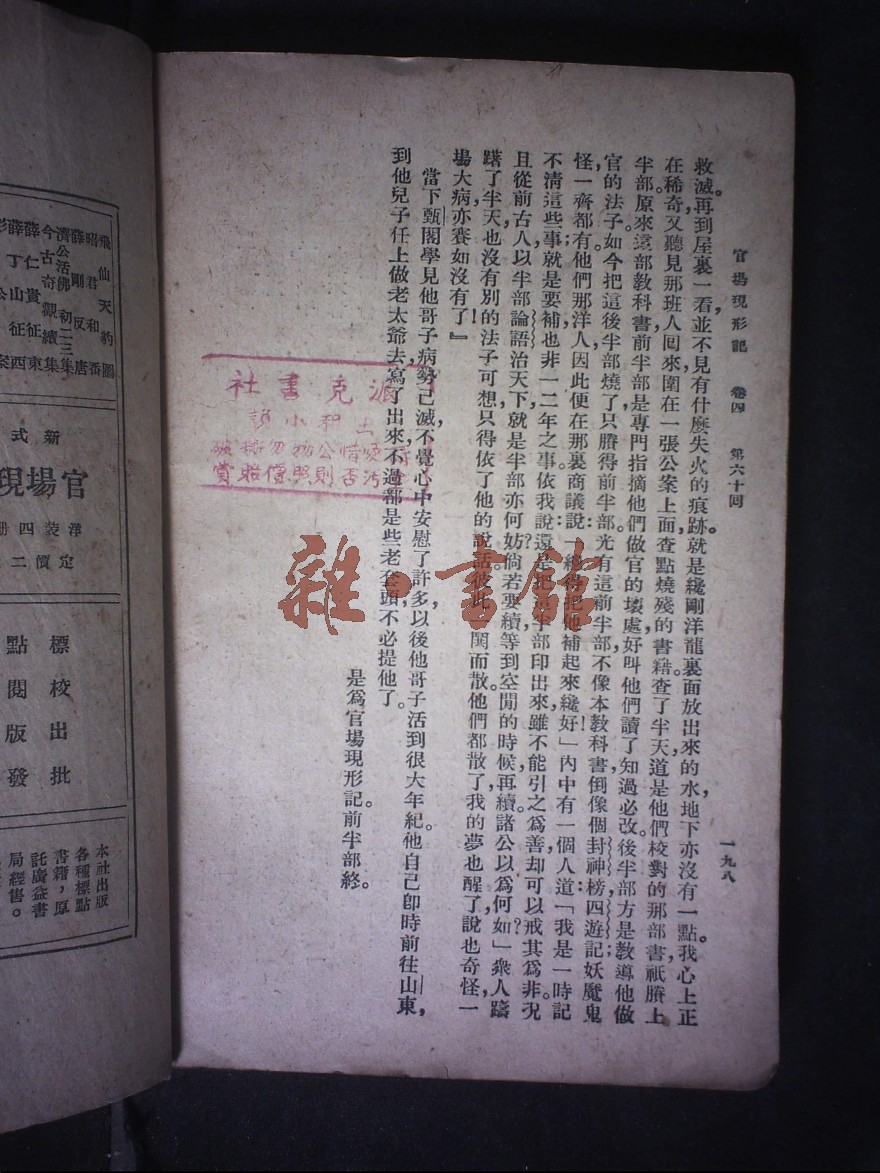 官場現形記 卷四 第六十回 一九八
救滅。再到屋裏一看，並不見有什麼失火的痕跡。就是纔剛洋龍裏面放出來的水，地下亦沒有一點。我心上正
在稀奇，又聽見那班人囘來，圍在一張公案上面，查點燒殘的書籍。查了半天，道是他們校對的那部書，祇賸上
半部。原來這部教科書，前半部是專門指摘他們做官的壞處，好叫他們讀了知過必改。後半部方是教導他做
官的法子。如今把這後半部燒了，只賸得前半部。光有這前半部，不像本教科書，倒像個封神榜，四遊記；妖魔鬼
怪一齊都有。他們那洋人因此便在那裏商議說：「總得把他補起來纔好！」內中有一個人道：「我是一時記
不清這些事，就是要補，也非一二年之事。依我說，還是把這半部印出來，雖不能引之爲善，却可以戒其爲非。況
且從前古人以半部論語治天下，就是半部亦何妨。倘若要續，等到空閒的時候再續。諸公以爲何如？」衆人躊
躇了半天，也沒有別的法子可想，只得依了他的說話，彼此一鬨而散。他們都散了，我的夢也醒了。說也奇怪，一
場大病，亦賽如沒有了！』
當下甄閣學見他哥子病勢已減，不覺心中安慰了許多。以後他哥子活到很大年紀。他自己卽時前往山東，
到他兒子任上做老太爺去，寫了出來，不過都是些老套頭，不必提他了。
是爲官場現形記。前半部終。
克書社
小說
愛惜公物勿撕破
污否則照價賠賞
雜書館
飛仙天豹圖
昭君和番
薛剛反唐
濟公活佛初二三集
今古奇觀續集
薛仁貴征東
薛丁山征西
公案
新式
官場現
洋裝四冊
定價二
標點
校閱
出版
批發
本社出版
各種標點
書籍，原
託廣益書
局經售。